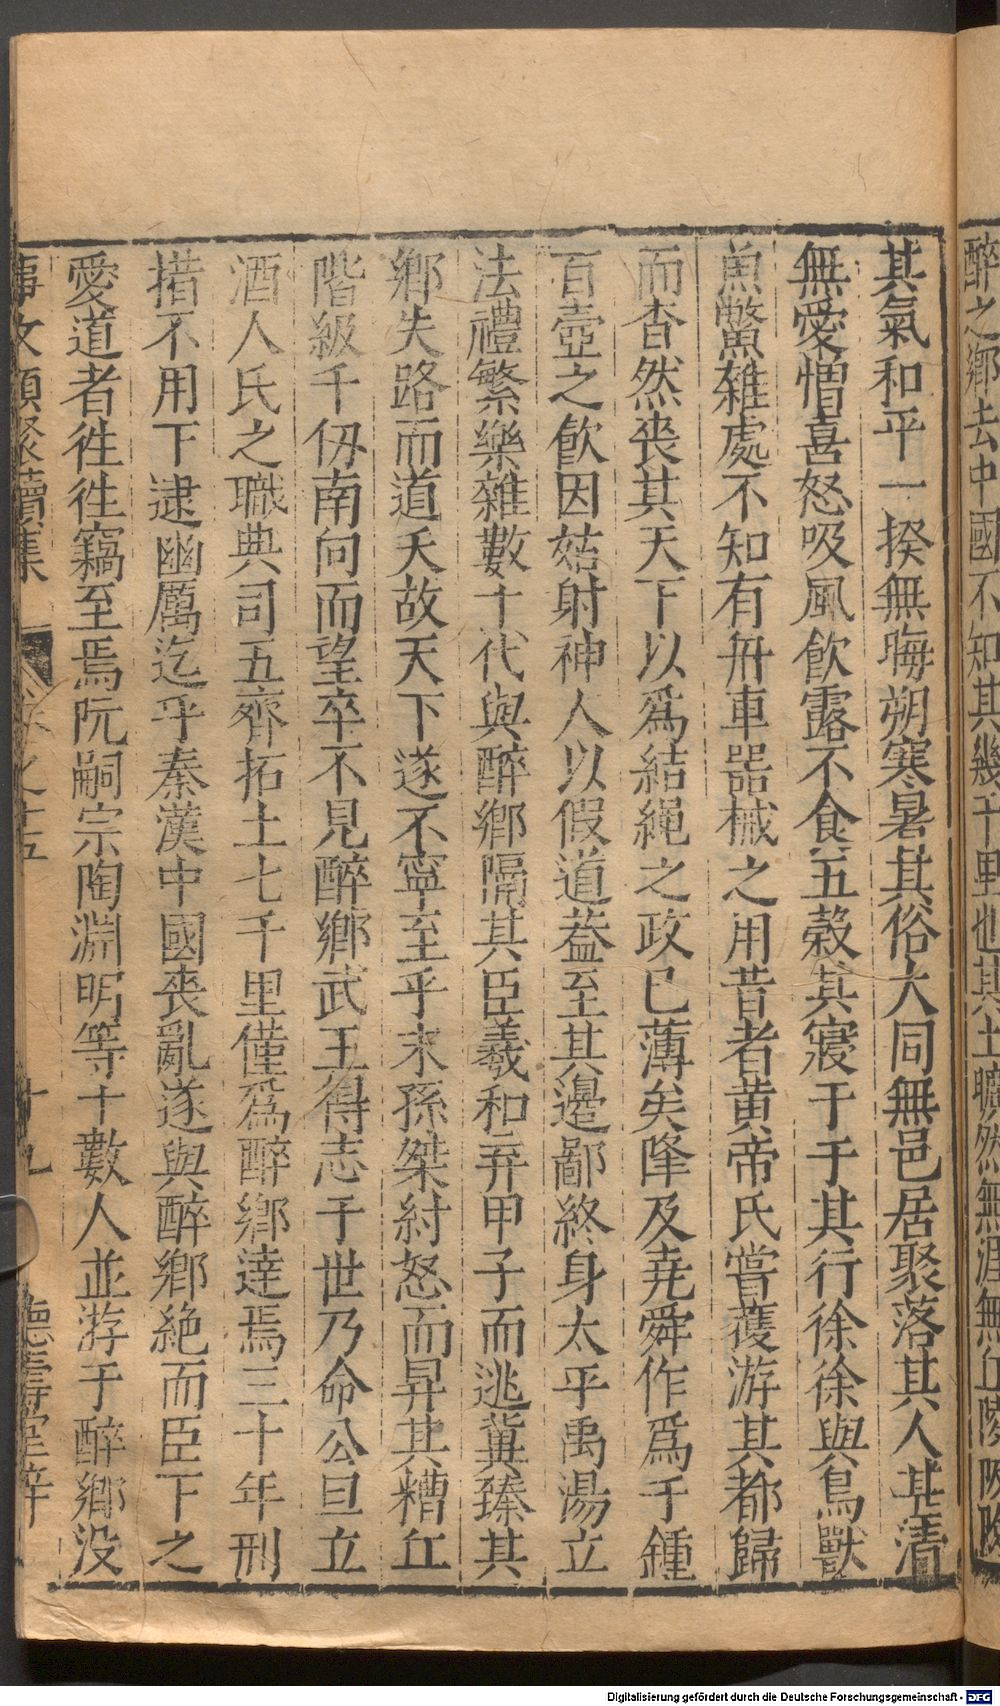 醉之鄉去中國不知其幾千里也其土曠然無涯無丘陵阪險
其氣和平一揆無晦朔寒暑其俗大同無邑居聚落其人甚清
無愛憎喜怒吸風飲露不食五穀其寢于于其行徐徐與鳥獸
魚鱉雜處不知有舟車噐械之用昔者黄帝氏嘗獲游其都歸
而杳然喪其天下以爲結繩之政已薄矣降及堯舜作爲千鍾
百壺之飲因姑射神人以假道葢至其邊鄙終身太平禹湯立
法禮繁樂雜數十代與醉鄉隔其臣羲和弃甲子而逃冀臻其
鄉失路而道夭故天下遂不寧至乎末孫桀紂怒而昇其糟丘
階級千仭南向而望卒不見醉鄉武王得志于世乃命公旦立
酒人氏之職典司五齊拓土七千里僅爲醉鄉達焉三十年刑
措不用下逮幽厲迄乎秦漢中國喪亂遂與醉鄉絶而臣下之
愛道者徃徃竊至焉阮嗣宗陶淵明等十數人並游于醉鄉没
事文類聚續集 卷之十五 十九 德壽堂梓
Digitalisierung gefördert durch die Deutsche Forschungsgemeinschaft - DFG